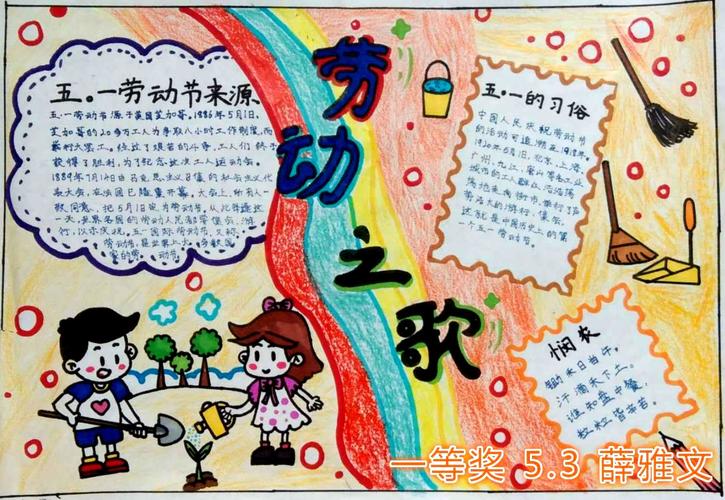 劳动之歌
五。一劳动节来源
五.一劳动节源于美国芝加哥。1886年5月1日,
芝加哥的20多万工人为争取八小时工作制度,而
获得了胜利,为了纪念这次工人运动会。
1889年7月14日
一致同意,把5月1日定为劳动节。从此每逢这
一天世界各国的劳动人民都
行,以示庆祝。五一国际劳动节,又称
劳动节,是世界上大多数国
家的劳动节
五.一的习俗
中国人民庆祝劳动节
的活动可追溯至1918年。
1920年5月1日,北京、上海、
广州、九江、唐山等各工业
城市的工人群众浩浩荡
荡地走向街市、举行了声
势浩大的游行、集会。
这就是中国历史上的第
一个五一劳动节。
悯农
锄禾日当午,
汗滴禾下土。
谁知盘中餐,
粒粒皆辛苦。
一等奖 5.3 薛雅文